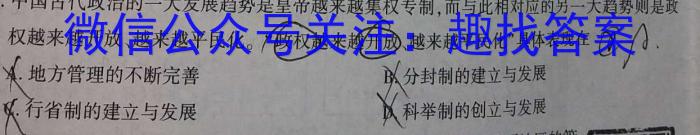 中国古代政治的一大发展趋势是皇帝越来越集权专制,而与此相对应的另一大趋势则是政
权越来越开放、越来越平民化。"政权越来越开放、越来越平民化"具体表现在
微信公众号关注:趣找答案
A.地方管理的不断完善
B.分封制的建立与发展
C.行省制的建立与发展
D.科举制的创立与发展